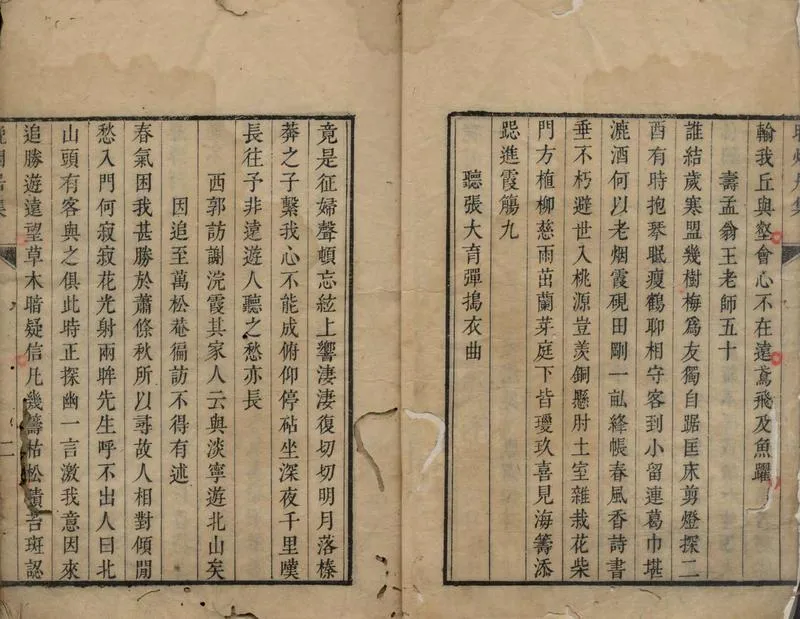 輸我丘與壑會心不在遠鳶飛及魚躍
壽孟翁王老師五十
誰結歲寒盟幾樹梅爲友獨自踞匡床剪燈探二
酉有時抱琴眠瘦鶴聊相守客到小留連葛巾堪
漉酒何以老烟霞硯田剛一畝絳帳春風香詩書
垂不朽避世入桃源豈羨銅懸肘土室雜栽花柴
門方植柳慈雨茁蘭芽庭下皆瓊玖喜見海籌添
跽進霞觴九
聽張大育彈搗衣曲
竟是征婦聲頓忘絃上響淒淒復切切明月落榛
莽之子繫我心不能成俯仰停砧坐深夜千里嘆
長往予非遠遊人聽之愁亦長
西郭訪謝浣霞其家人云與淡寧遊北山矣
因追至萬松菴徧訪不得有述
春氣困我甚勝於蕭條秋所以尋故人相對傾閒
愁入門何寂寂花光射兩眸先生呼不出人曰北
山頭有客與之俱此時正探幽一言激我意因來
追勝遊遠望草木暗疑信凡幾籌枯松積古班認
居集
二